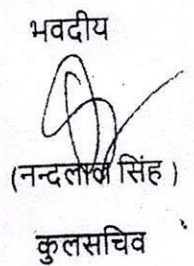 भवदीय
(नन्दलाल सिंह )
कुलसचिव